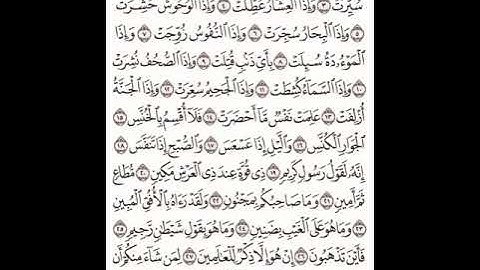 سُيِّرَتْ ٣ وَإِذَا ٱلْعِشَارُ عُطِّلَتْ ٤ وَإِذَا ٱلْوُحُوشُ حُشِرَتْ
٥ وَإِذَا ٱلْبِحَارُ سُجِّرَتْ ٦ وَإِذَا ٱلنُّفُوسُ زُوِّجَتْ ٧ وَإِذَا
ٱلْمَوْءُۥدَةُ سُئِلَتْ ٨ بِأَيِّ ذَنۢبٍ قُتِلَتْ ٩ وَإِذَا ٱلصُّحُفُ نُشِرَتْ
١٠ وَإِذَا ٱلسَّمَآءُ كُشِطَتْ ١١ وَإِذَا ٱلْجَحِيمُ سُعِّرَتْ ١٢ وَإِذَا ٱلْجَنَّةُ
أُزْلِفَتْ ١٣ عَلِمَتْ نَفْسٌ مَّآ أَحْضَرَتْ ١٤ فَلَآ أُقْسِمُ بِٱلْخُنَّسِ ١٥
ٱلْجَوَارِ ٱلْكُنَّسِ ١٦ وَٱلَّيْلِ إِذَا عَسْعَسَ ١٧ وَٱلصُّبْحِ إِذَا تَنَفَّسَ ١٨
إِنَّهُۥ لَقَوْلُ رَسُولٍ كَرِيمٍ ١٩ ذِى قُوَّةٍ عِندَ ذِى ٱلْعَرْشِ مَكِينٍ ٢٠ مُّطَاعٍ
ثَمَّ أَمِينٍ ٢١ وَمَا صَاحِبُكُم بِمَجْنُونٍ ٢٢ وَلَقَدْ رَءَاهُ بِٱلْأُفُقِ ٱلْمُبِينِ
٢٣ وَمَا هُوَ عَلَى ٱلْغَيْبِ بِضَنِينٍ ٢٤ وَمَا هُوَ بِقَوْلِ شَيْطَٰنٍ رَّجِيمٍ ٢٥
فَأَيْنَ تَذْهَبُونَ ٢٦ إِنْ هُوَ إِلَّا ذِكْرٌ لِّلْعَٰلَمِينَ ٢٧ لِمَن شَآءَ مِنكُمْ أَن